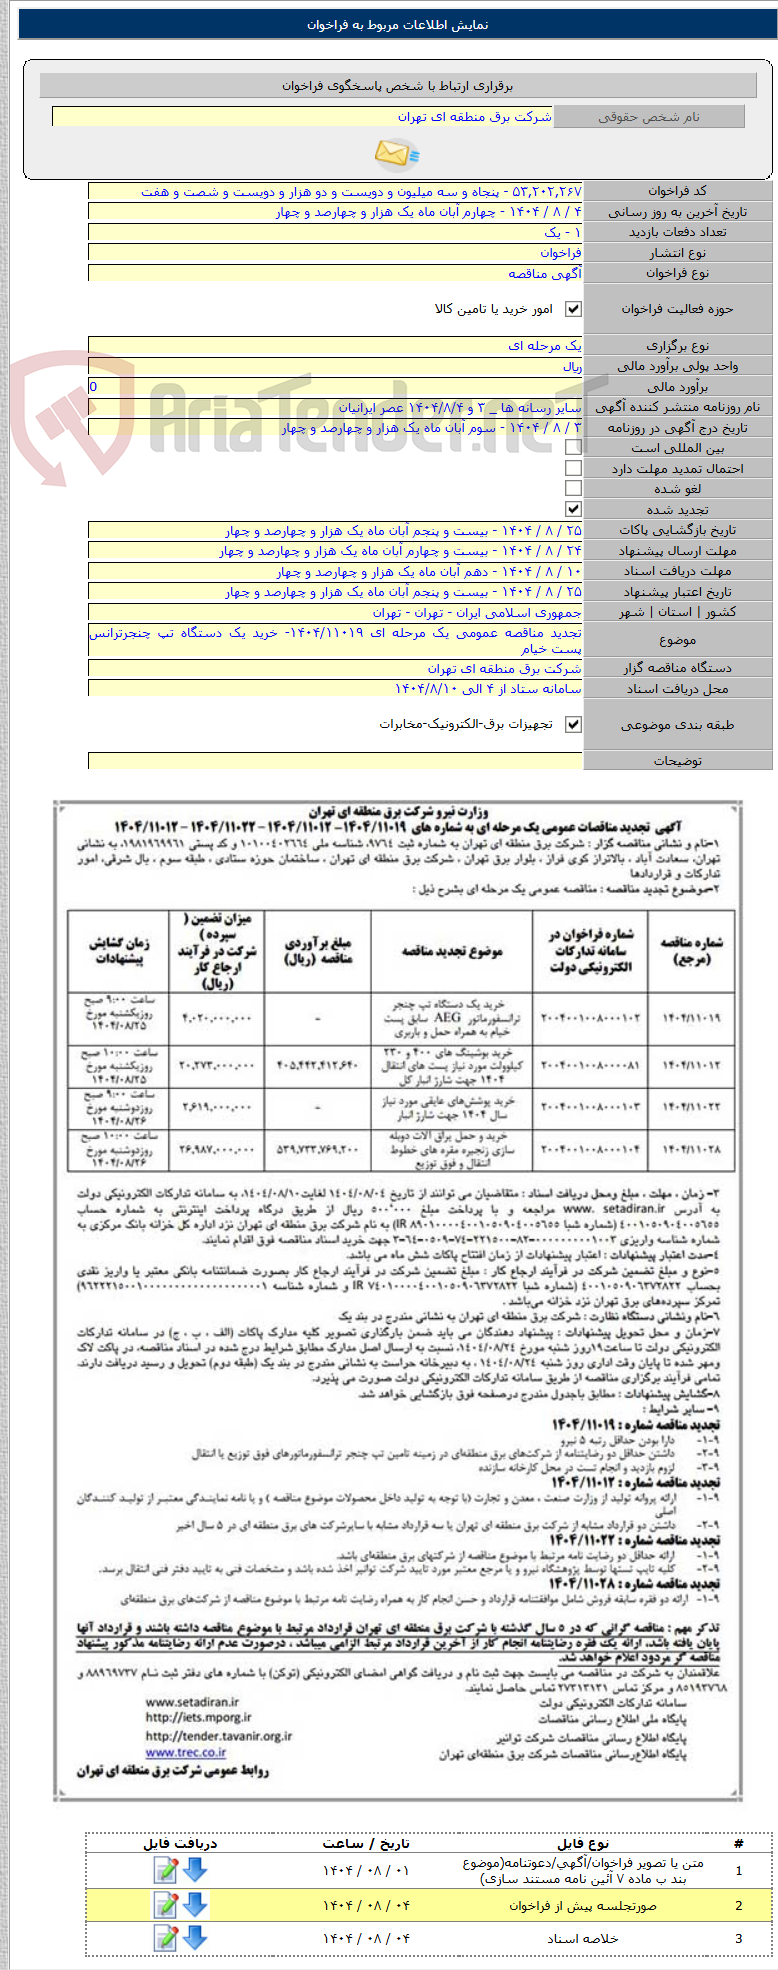 نمایش اطلاعات مربوط به فراخوان
برقراری ارتباط با شخص پاسخگوی فراخوان
نام شخص حقوقی
شرکت برق منطقه ای تهران
کد فراخوان
۵۳,۲۰۲,۲۶۷ - پنجاه و سه میلیون و دویست و دو هزار و دویست و شصت و هفت
تاریخ آخرین به روز رسانی
۴ / ۸ / ۱۴۰۴ - چهارم آبان ماه یک هزار و چهارصد و چهار
تعداد دفعات بازدید
۱ - یک
نوع انتشار
فراخوان
نوع فراخوان
آگهی مناقصه
حوزه فعالیت فراخوان
امور خرید یا تامین کالا
نوع برگزاری
یک مرحله ای
واحد پولی برآورد مالی
ریال
برآورد مالی
0
نام روزنامه منتشر کننده آگهی
سایر رسانه ها _ ۳ و ۱۴۰۴/۸/۴ عصر ایرانیان
تاریخ درج آگهی در روزنامه
۳ / ۸ / ۱۴۰۴ - سوم آبان ماه یک هزار و چهارصد و چهار
AriaTender.neT
بین المللی است
احتمال تمدید مهلت دارد
لغو شده
تجدید شده
تاریخ بازگشایی پاکات
۲۵ / ۸ / ۱۴۰۴ - بیست و پنجم آبان ماه یک هزار و چهارصد و چهار
مهلت ارسال پیشنهاد
۲۴ / ۸ / ۱۴۰۴ - بیست و چهارم آبان ماه یک هزار و چهارصد و چهار
مهلت دریافت اسناد
۱۰ / ۸ / ۱۴۰۴ - دهم آبان ماه یک هزار و چهارصد و چهار
تاریخ اعتبار پیشنهاد
۲۵ / ۸ / ۱۴۰۴ - بیست و پنجم آبان ماه یک هزار و چهارصد و چهار
کشور | استان | شهر
جمهوری اسلامی ایران - تهران - تهران
موضوع
تجدید مناقصه عمومی یک مرحله ای ۱۴۰۴/۱۱۰۱۹- خرید یک دستگاه تپ چنجرترانس
پست خیام
دستگاه مناقصه گزار
شرکت برق منطقه ای تهران
محل دریافت اسناد
سامانه ستاد از ۴ الی ۱۴۰۴/۸/۱۰
طبقه بندی موضوعی
تجهیزات برق-الکترونیک-مخابرات
توضیحات
وزارت نیرو شرکت برق منطقه ای تهران
آگهی تجدید مناقصات عمومی یک مرحله ای به شماره های ۱۴۰۴/۱۱۰۱۹ - ۱۴۰۴/۱۱۰۱۲ - ۱۴۰۴/۱۱۰۲۲ - ۱۴۰۴/۱۱۰۱۲
۱-نام و نشانی مناقصه گزار : شرکت برق منطقه ای تهران به شماره ثبت ۹۷۶۴، شناسه ملی ۱۰۱۰۰۴۰۲۶۶۴ و کد پستی ۱۹۸۱۹۶۹۹۶۱، به نشانی
تهران، سعادت آباد ، بالاتراز کوی فراز ، بلوار برق تهران ، شرکت برق منطقه ای تهران ، ساختمان حوزه ستادی ، طبقه سوم ، بال شرقی، امور
تدارکات و قراردادها
۲-موضوع تجدید مناقصه : مناقصه عمومی یک مرحله ای بشرح ذیل :
شماره مناقصه (مرجع)
شماره فراخوان در سامانه تدارکات الکترونیکی دولت
موضوع تجدید مناقصه
مبلغ برآوردی مناقصه (ریال)
میزان تضمین ( سپرده ) شرکت در فرآیند ارجاع کار (ریال)
زمان گشایش پیشنهادات
۱۴۰۴/۱۱۰۱۹
۲۰۰۴۰۰۱۰۰۸۰۰۰۱۰۲
خرید یک دستگاه تپ چنجر ترانسفورماتور AEG سابق پست خیام به همراه حمل و باربری
-
۴,۰۲۰,۰۰۰,۰۰۰
ساعت ۹:۰۰ صبح روزیکشنبه مورخ ۱۴۰۴/۰۸/۲۵
۱۴۰۴/۱۱۰۱۲
۲۰۰۴۰۰۱۰۰۸۰۰۰۰۸۱
خرید بوشینگ های ۴۰۰ و ۲۳۰ کیلوولت مورد نیاز پست های انتقال ۱۴۰۴ جهت شارژ انبار کل
۴۰۵,۴۴۲,۴۱۲,۶۴۰
۲۰,۲۷۳,۰۰۰,۰۰۰
ساعت ۱۰:۰۰ صبح روزیکشنبه مورخ ۱۴۰۴/۰۸/۲۵
۱۴۰۴/۱۱۰۲۲
۲۰۰۴۰۰۱۰۰۸۰۰۰۱۰۳
خرید پوشش‌های عایقی مورد نیاز سال ۱۴۰۴ جهت شارژ انبار
-
۲,۶۱۹,۰۰۰,۰۰۰
ساعت ۹:۰۰ صبح روزدوشنبه مورخ ۱۴۰۴/۰۸/۲۶
۱۴۰۴/۱۱۰۲۸
۲۰۰۴۰۰۱۰۰۸۰۰۰۱۰۴
خرید و حمل یراق آلات دوبله سازی زنجیره مقره های خطوط انتقال و فوق توزیع
۵۳۹,۷۳۳,۷۶۹,۲۰۰
۲۶,۹۸۷,۰۰۰,۰۰۰
ساعت ۱۰:۰۰ صبح روزدوشنبه مورخ ۱۴۰۴/۰۸/۲۶
۳- زمان ، مهلت ، مبلغ ومحل دریافت اسناد : متقاضیان می توانند از تاریخ ۱۴۰۴/۰۸/۰۴ لغایت۱۴۰۴/۰۸/۱۰، به سامانه تدارکات الکترونیکی دولت
به آدرس www. setadiran.ir مراجعه و با پرداخت مبلغ ۵۰۰٬۰۰۰ ریال از طریق درگاه پرداخت اینترنتی به شماره حساب
به نام شرکت برق منطقه ای تهران نزد اداره کل خزانه بانک مرکزی به
جهت خرید اسناد مناقصه فوق اقدام نمایند.
۴-مدت اعتبار پیشنهادات : اعتبار پیشنهادات از زمان افتتاح پاکات شش ماه می باشد.
۵-نوع و مبلغ تضمین شرکت در فرآیند ارجاع کار : مبلغ تضمین شرکت در فرآیند ارجاع کار بصورت ضمانتنامه بانکی معتبر یا واریز نقدی
تمرکز سپرده‌های برق تهران نزد خزانه می‌باشد .
۶-نام ونشانی دستگاه نظارت : شرکت برق منطقه ای تهران به نشانی مندرج در بند یک
۷-زمان و محل تحویل پیشنهادات : پیشنهاد دهندگان می باید ضمن بارگذاری تصویر کلیه مدارک پاکات (الف ، ب ، ج) در سامانه تدارکات
الکترونیکی دولت تا ساعت۱۹روز شنبه مورخ ۱۴۰۴/۰۸/۲۴، نسبت به ارسال اصل مدارک مطابق شرایط درج شده در اسناد مناقصه، در پاکت لاک
ومهر شده تا پایان وقت اداری روز شنبه ۱۴۰۴/۰۸/۲۴ ، به دبیرخانه حراست به نشانی مندرج در بند یک (طبقه دوم) تحویل و رسید دریافت دارند.
تمامی فرآیند برگزاری مناقصه از طریق سامانه تدارکات الکترونیکی دولت صورت می پذیرد.
۸-گشایش پیشنهادات : مطابق باجدول مندرج درصفحه فوق بازگشایی خواهد شد.
۹- سایر شرایط :
تجدید مناقصه شماره : ۱۴۰۴/۱۱۰۱۹
۹-۱- دارا بودن حداقل رتبه ۵ نیرو
۹-۲- داشتن حداقل دو رضایتنامه از شرکت‌های برق منطقه‌ای در زمینه تامین تپ چنجر ترانسفورماتورهای فوق توزیع یا انتقال
۹-۳- لزوم بازدید و انجام تست در محل کارخانه سازنده
تجدید مناقصه شماره : ۱۴۰۴/۱۱۰۱۲
۹-۱- ارائه پروانه تولید از وزارت صنعت ، معدن و تجارت (با توجه به تولید داخل محصولات موضوع مناقصه ) و یا نامه نمایندگی معتبر از تولید کنندگان
اصلی
۹-۲- داشتن دو قرارداد مشابه از شرکت برق منطقه ای تهران یا سه قرارداد مشابه با سایرشرکت های برق منطقه ای در ۵ سال اخیر
تجدید مناقصه شماره : ۱۴۰۴/۱۱۰۲۲
۹-۱- ارائه حداقل دو رضایت نامه مرتبط با موضوع مناقصه از شرکتهای برق منطقه‌ای باشد.
۹-۲- کلیه تایپ تستها توسط پژوهشگاه نیرو و یا مرجع معتبر مورد تایید شرکت توانیر اخذ شده باشد و مشخصات فنی به تایید دفتر فنی انتقال برسد.
تجدید مناقصه شماره : ۱۴۰۴/۱۱۰۲۸
۹-۱- ارائه دو فقره سابقه فروش شامل موافقتنامه قرارداد و حسن انجام کار به همراه رضایت نامه مرتبط با موضوع مناقصه از شرکت‌های برق منطقه‌ای
تذکر مهم : مناقصه گرانی که در ۵ سال گذشته با شرکت برق منطقه ای تهران قرارداد مرتبط با موضوع مناقصه داشته باشند و قرارداد آنها
پایان یافته باشد، ارائه یک فقره رضایتنامه انجام کار از آخرین قرارداد مرتبط الزامی میباشد ، درصورت عدم ارائه رضایتنامه مذکور پیشنهاد
مناقصه گر مردود اعلام خواهد شد.
علاقمندان به شرکت در مناقصه می بایست جهت ثبت نام و دریافت گواهی امضای الکترونیکی (توکن) با شماره های دفتر ثبت نام ۸۸۹۶۹۷۳۷ و
۸۵۱۹۳۷۶۸ و مرکز تماس ۲۷۳۱۳۱۳۱ تماس حاصل نمایند.
سامانه تدارکات الکترونیکی دولت
www.setadiran.ir
پایگاه ملی اطلاع رسانی مناقصات
http://iets.mporg.ir
پایگاه اطلاع رسانی مناقصات شرکت توانیر
http://tender.tavanir.org.ir
پایگاه اطلاع‌رسانی مناقصات شرکت برق منطقه‌ای تهران
www.trec.co.ir
روابط عمومی شرکت برق منطقه ای تهران
# نوع فایل تاریخ / ساعت دریافت فایل
1 متن یا تصویر فراخوان/آگهی/دعوتنامه(موضوع بند ب ماده ۷ آئین نامه مستند سازی) ۱۴۰۴ / ۰۸ / ۰۱
2 صورتجلسه پیش از فراخوان ۱۴۰۴ / ۰۸ / ۰۴
3 خلاصه اسناد ۱۴۰۴ / ۰۸ / ۰۴